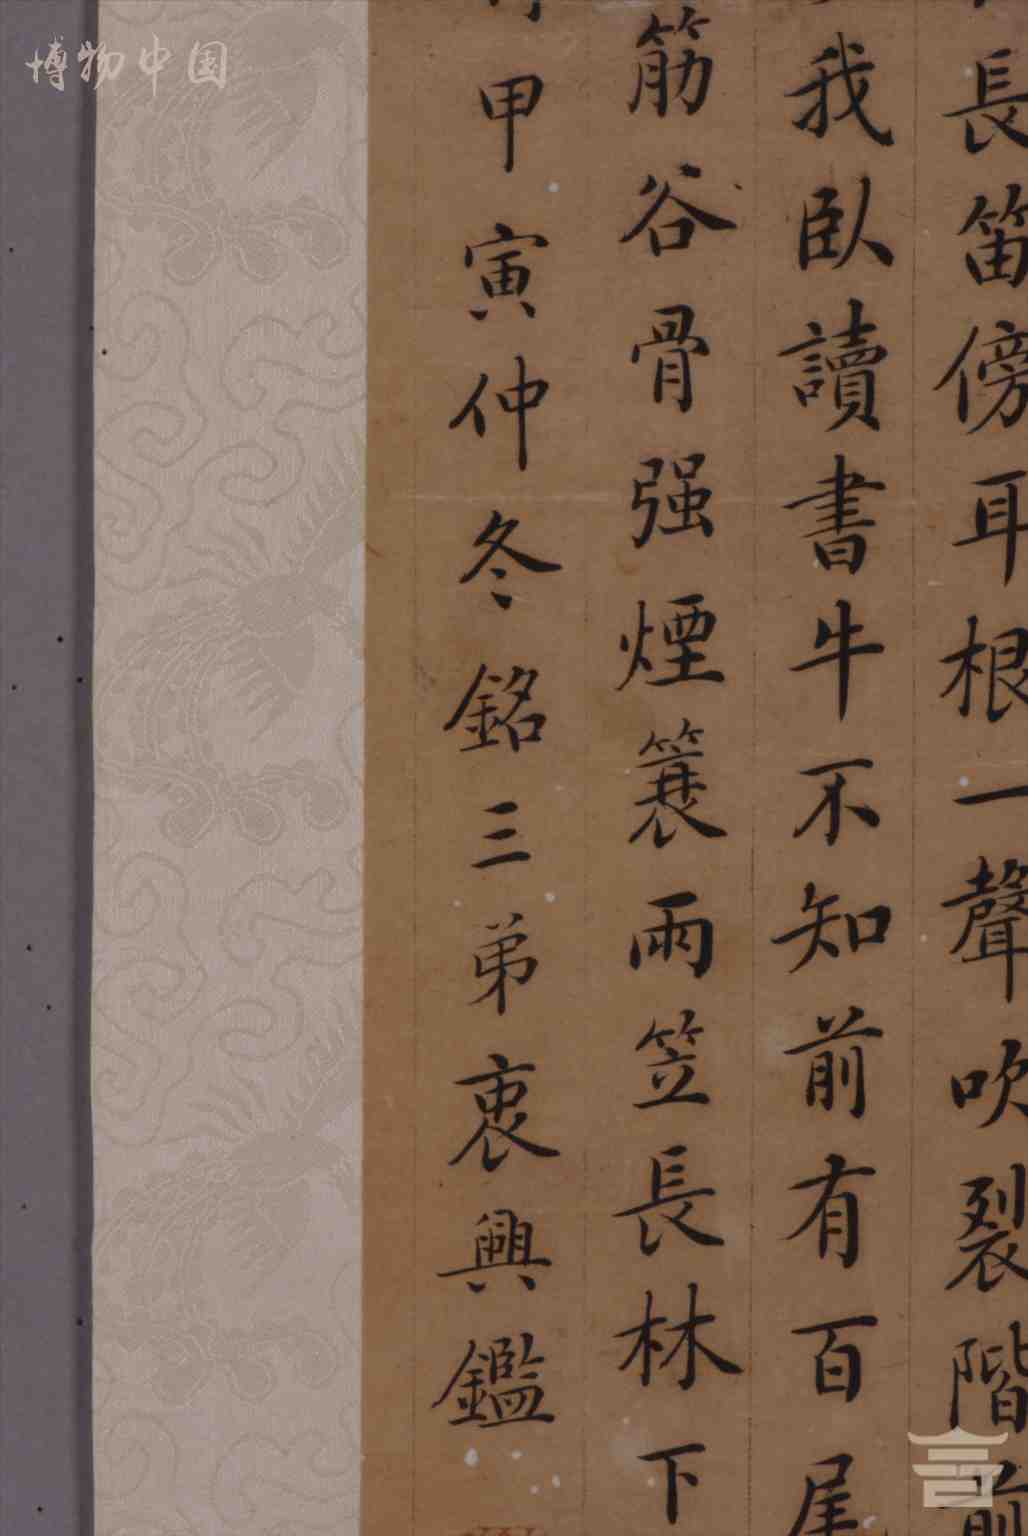 長笛傍耳根一聲吹裂階前
我臥讀書牛不知前有百尾
筋谷骨强煙蓑雨笠長林下
甲寅仲冬銘三弟衷興鑑
博物中国